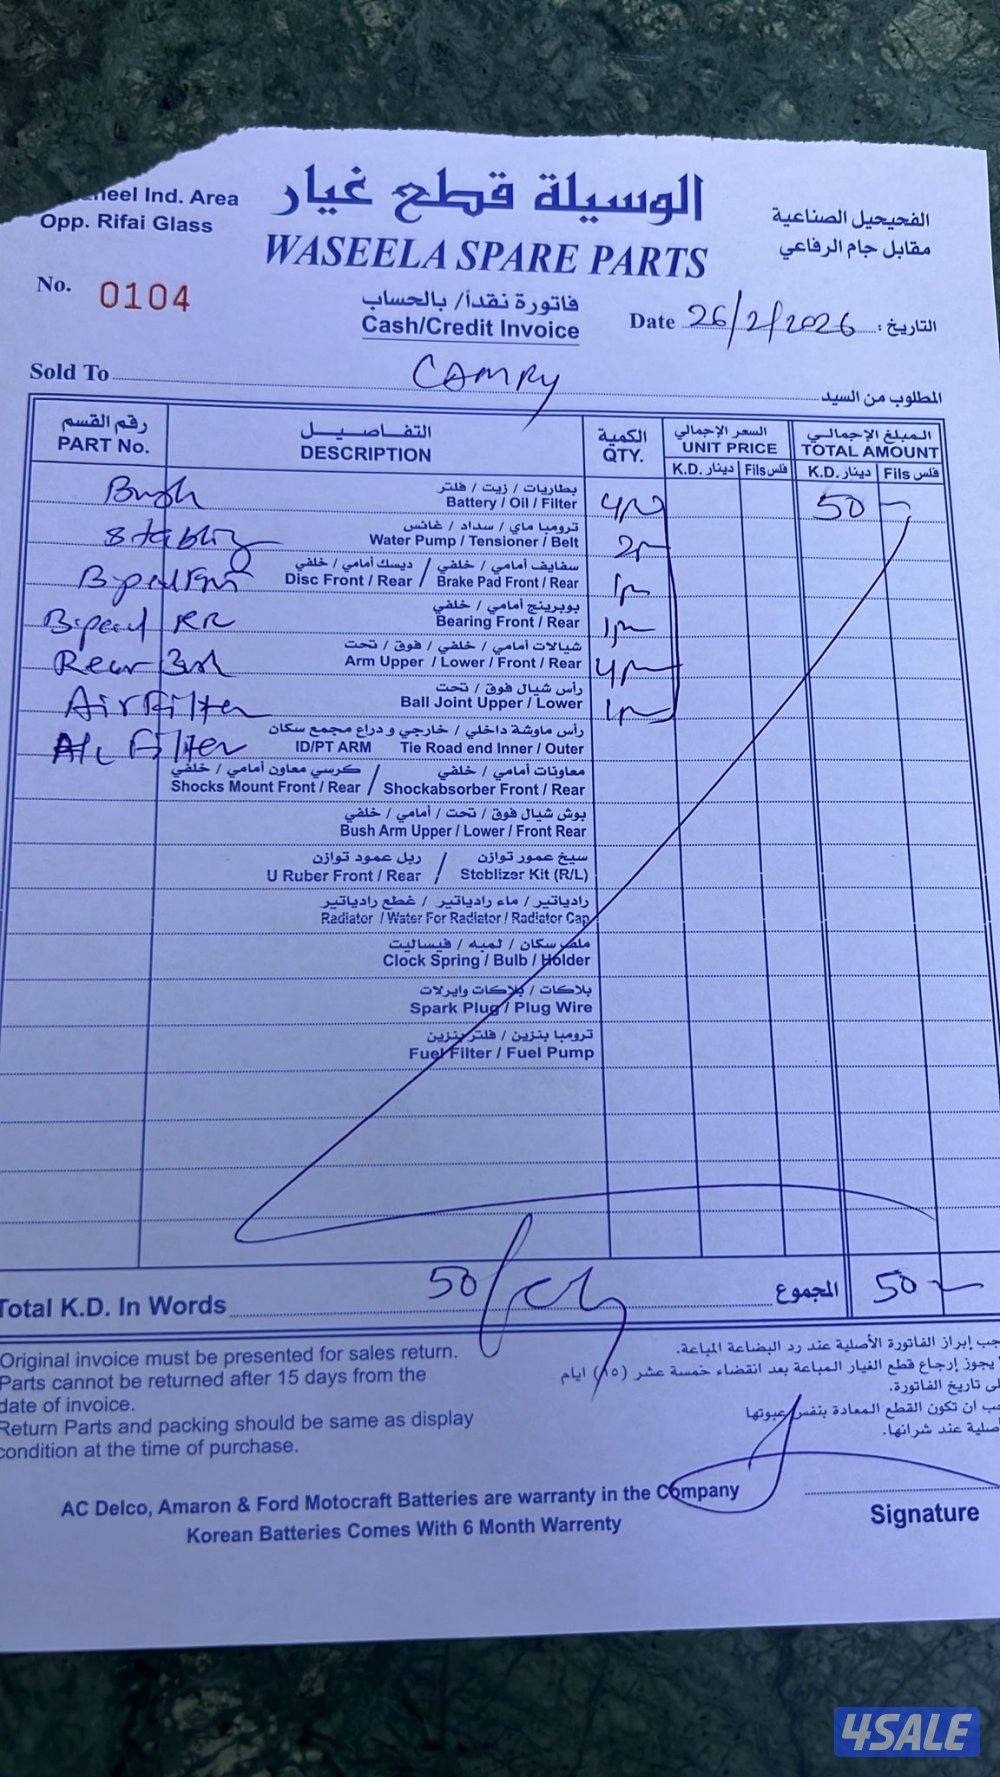 الوسيلة قطع غيار
WASEELA SPARE PARTS
heel Ind. Area
Opp. Rifai Glass
الفحيحيل الصناعية
مقابل جام الرفاعي
No. 0104
فاتورة نقداً/ بالحساب
Cash/Credit Invoice
Date 26/2/2026 التاريخ :
Sold To Camry المطلوب من السيد
رقم القسم التفـاصـيـل الكمية السعر الإجمالي المبلغ الإجمالي
PART No. DESCRIPTION QTY. UNIT PRICE TOTAL AMOUNT
K.D. دينار Fils فلس K.D. دينار Fils فلس
بطاريات / زيت / فلتر
Bush Battery / Oil / Filter 50
ترومبا ماي / سداد / غانس
Water Pump / Tensioner / Belt
سفايف أمامي / خلفي / ديسك أمامي / خلفي
Disc Front / Rear / Brake Pad Front / Rear
بوبرينج أمامي / خلفي
RR Bearing Front / Rear
شيالات أمامي / خلفي / فوق / تحت
Rear Arm Upper / Lower / Front / Rear
رأس شيال فوق / تحت
Air Filter Ball Joint Upper / Lower
رأس ماوشة داخلي / خارجي و دراع مجمع سكان
A/c Filter ID/PT ARM Tie Road end Inner / Outer
معاونات أمامي / خلفي / كرسي معاون أمامي / خلفي
Shocks Mount Front / Rear / Shockabsorber Front / Rear
بوش شيال فوق / تحت / أمامي / خلفي
Bush Arm Upper / Lower / Front Rear
سيخ عمور توازن / ربل عمود توازن
U Ruber Front / Rear / Steblizer Kit (R/L)
رادياتير / ماء رادياتير / غطع رادياتير
Radiator / Water For Radiator / Radiator Cap
ملف سكان / لمبه / فيساليت
Clock Spring / Bulb / Holder
بلاكات / بلاكات وايرلات
Spark Plug / Plug Wire
ترومبا بنزين / فلتر بنزين
Fuel Filter / Fuel Pump
Total K.D. In Words 50/ المجموع 50
Original invoice must be presented for sales return.
Parts cannot be returned after 15 days from the
date of invoice.
Return Parts and packing should be same as display
condition at the time of purchase.
جب إبراز الفاتورة الأصلية عند رد البضاعة المباعة.
يجوز إرجاع قطع الغيار المباعة بعد انقضاء خمسة عشر (١٥) ايام
لى تاريخ الفاتورة.
جب ان تكون القطع المعادة بنفس عبوتها
أصلية عند شرائها.
AC Delco, Amaron & Ford Motocraft Batteries are warranty in the Company
Korean Batteries Comes With 6 Month Warrenty
Signature
4SALE